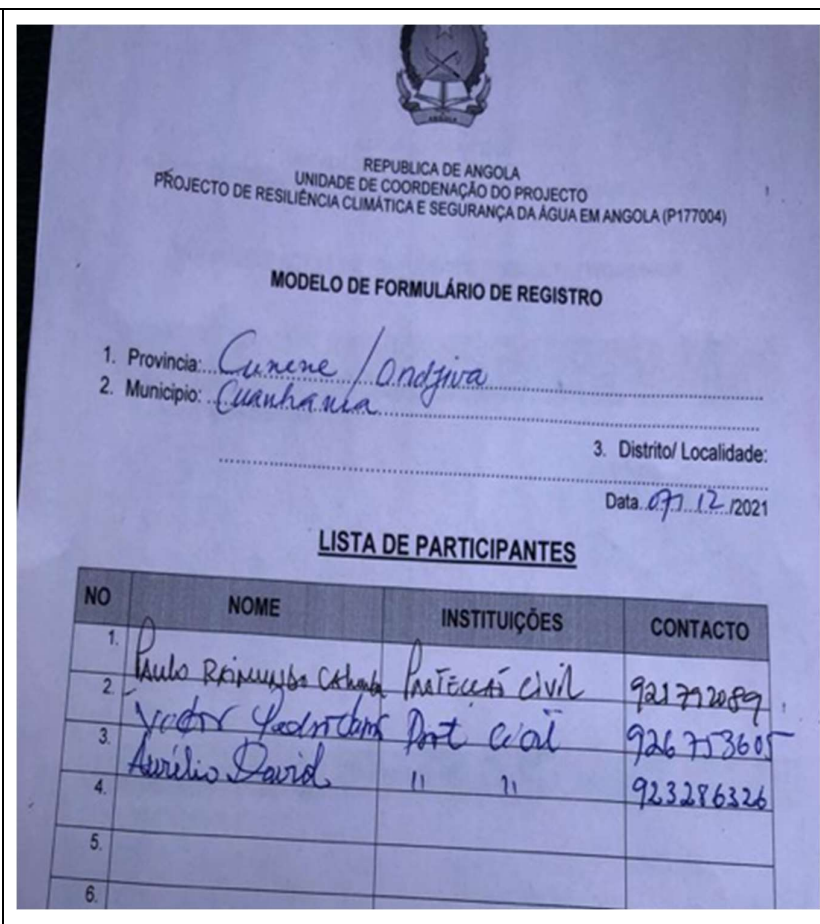 ANGOLA
REPUBLICA DE ANGOLA
UNIDADE DE COORDENAÇÃO DO PROJECTO
PROJECTO DE RESILIÊNCIA CLIMÁTICA E SEGURANÇA DA ÁGUA EM ANGOLA (P177004)
MODELO DE FORMULÁRIO DE REGISTRO
1. Provincia: Cunene / Ondjiva
2. Municipio: Cuanhama
3. Distrito/ Localidade:
Data 07 12 /2021
LISTA DE PARTICIPANTES
NO NOME INSTITUIÇÕES CONTACTO
1. Paulo Raimundo Civil 921792089
2. Victor 926753605
3. Aurélio David " " 923286326
4.
5.
6.